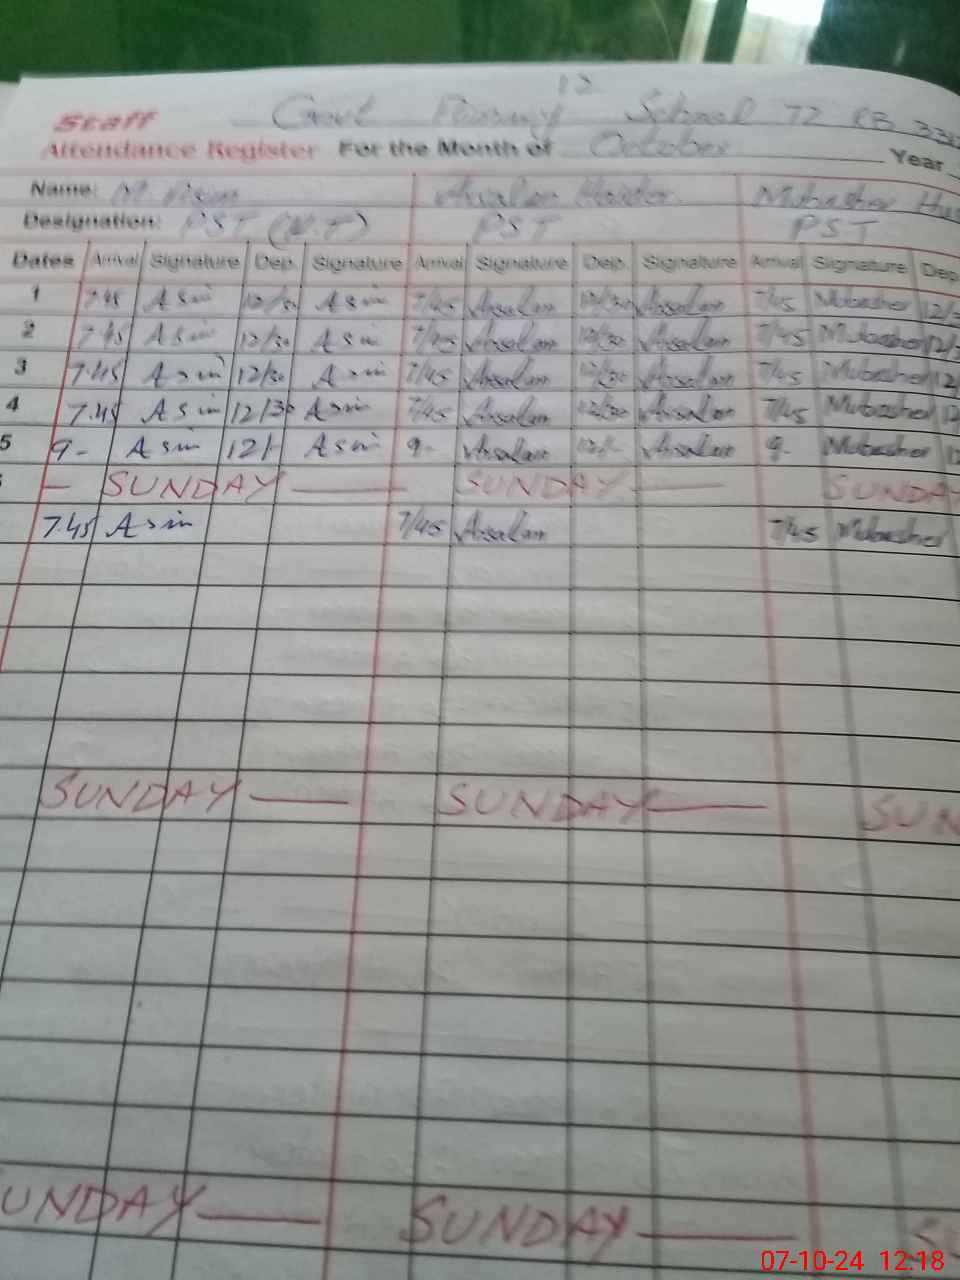 12
Staff Govt Primary School 72 EB 33
Attendance Register For the Month of October Year
Name: M. Asim Arsalan Haider Mubasher Hus
Designation: PST (H.T) PST PST
Dates Arrival Signature Dep. Signature Arrival Signature Dep. Signature Arrival Signature Dep
1 7.45 Asim 12/30 Asim 7/45 Arsalan 12/30 Arsalan 7/45 Mubasher 12/3
2 7.45 Asim 12/30 Asim 7/45 Arsalan 12/30 Arsalan 7/45 Mubasher 12/3
3 7.45 Asim 12/30 Asim 7/45 Arsalan 12/30 Arsalan 7/45 Mubasher 12
4 7.45 Asim 12/30 Asim 7/45 Arsalan 12/30 Arsalan 7/45 Mubasher 12
5 9- Asim 12/- Asim 9- Arsalan 12/- Arsalan 9- Mubasher 12
SUNDAY SUNDAY SUNDAY
7.45 Asim 7/45 Arsalan 7/45 Mubasher
SUNDAY SUNDAY SUN
UNDAY SUNDAY SU
07-10-24 12.18